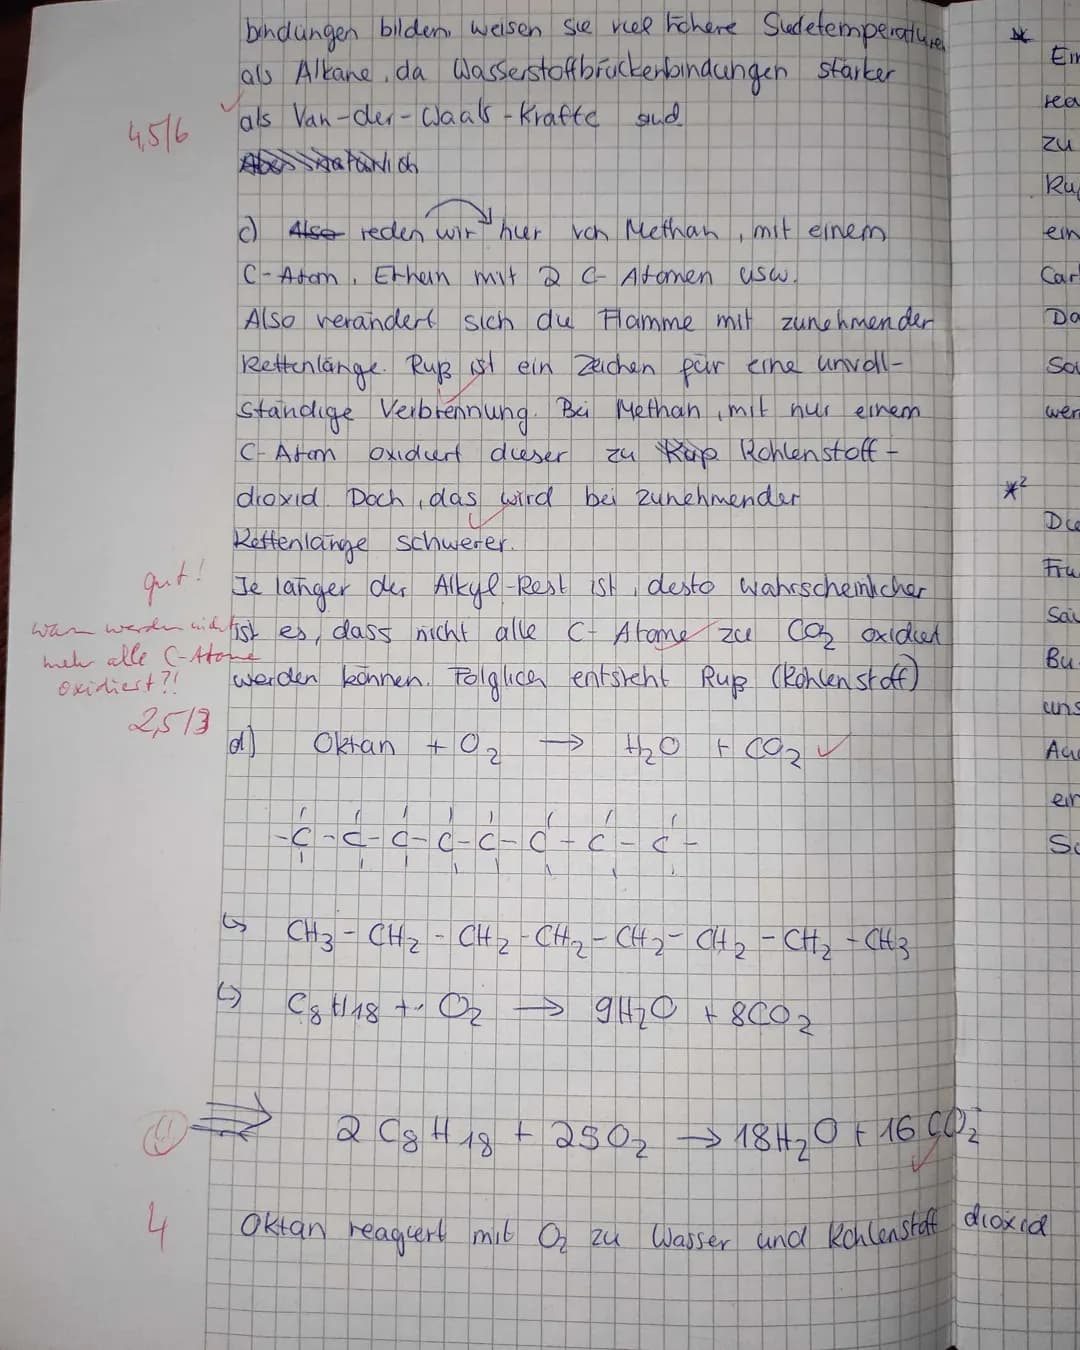 bindungen bilden, weisen sie viel höhere Siedetemperaturen
als Alkane, da Wasserstoffbrückenbindungen stärker
als Van-der-Waals-Kräfte sind
4,5/6
c) Also reden wir hier von Methan, mit einem
C-Atom, Ethan mit 2 C-Atomen usw.
Also verändert sich die Flamme mit zunehmender
Kettenlänge. Ruß ist ein Zeichen für eine unvoll-
ständige Verbrennung. Bei Methan, mit nur einem
C-Atom oxidiert dieser zu Kohlenstoff-
dioxid. Doch, das wird bei zunehmender
Kettenlänge schwerer.
gut!
Je länger der Alkyl-Rest ist, desto wahrscheinlicher
ist es, dass nicht alle C-Atome zu CO2 oxidiert
werden können. Folglich entsteht Ruß (Kohlenstoff)
werden nicht
mehr alle C-Atome
oxidiert?!
2,5/3
d) Oktan + O2 → H2O + CO2 ✓
-C-C-C-C-C-C-C-C-
↳ CH3-CH2-CH2-CH2-CH2-CH2-CH2-CH3
↳ C8H18 + O2 → 9H2O + 8CO2
⇒ 2 C8H18 + 25O2 → 18H2O + 16CO2
4
Oktan reagiert mit O2 zu Wasser und Kohlenstoffdioxid
*
Ein
rea
zu
Ru
ein
Car
Da
So
wer
*2
Die
Fru
Säu
Bu
uns
Au
ein
So